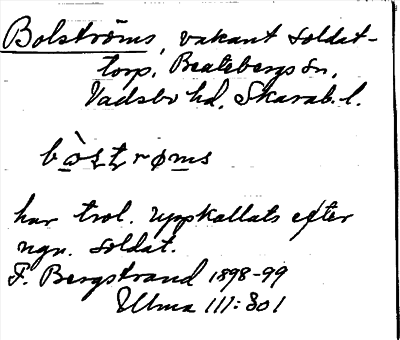 Bolströms, vakant soldat-
torp, Beatebergs sn,
Vadsbo hd, Skarab. l.
bòstrøms
har trol. uppkallats efter
ngn. soldat.
F. Bergstrand 1898-99
Ulma 111:301